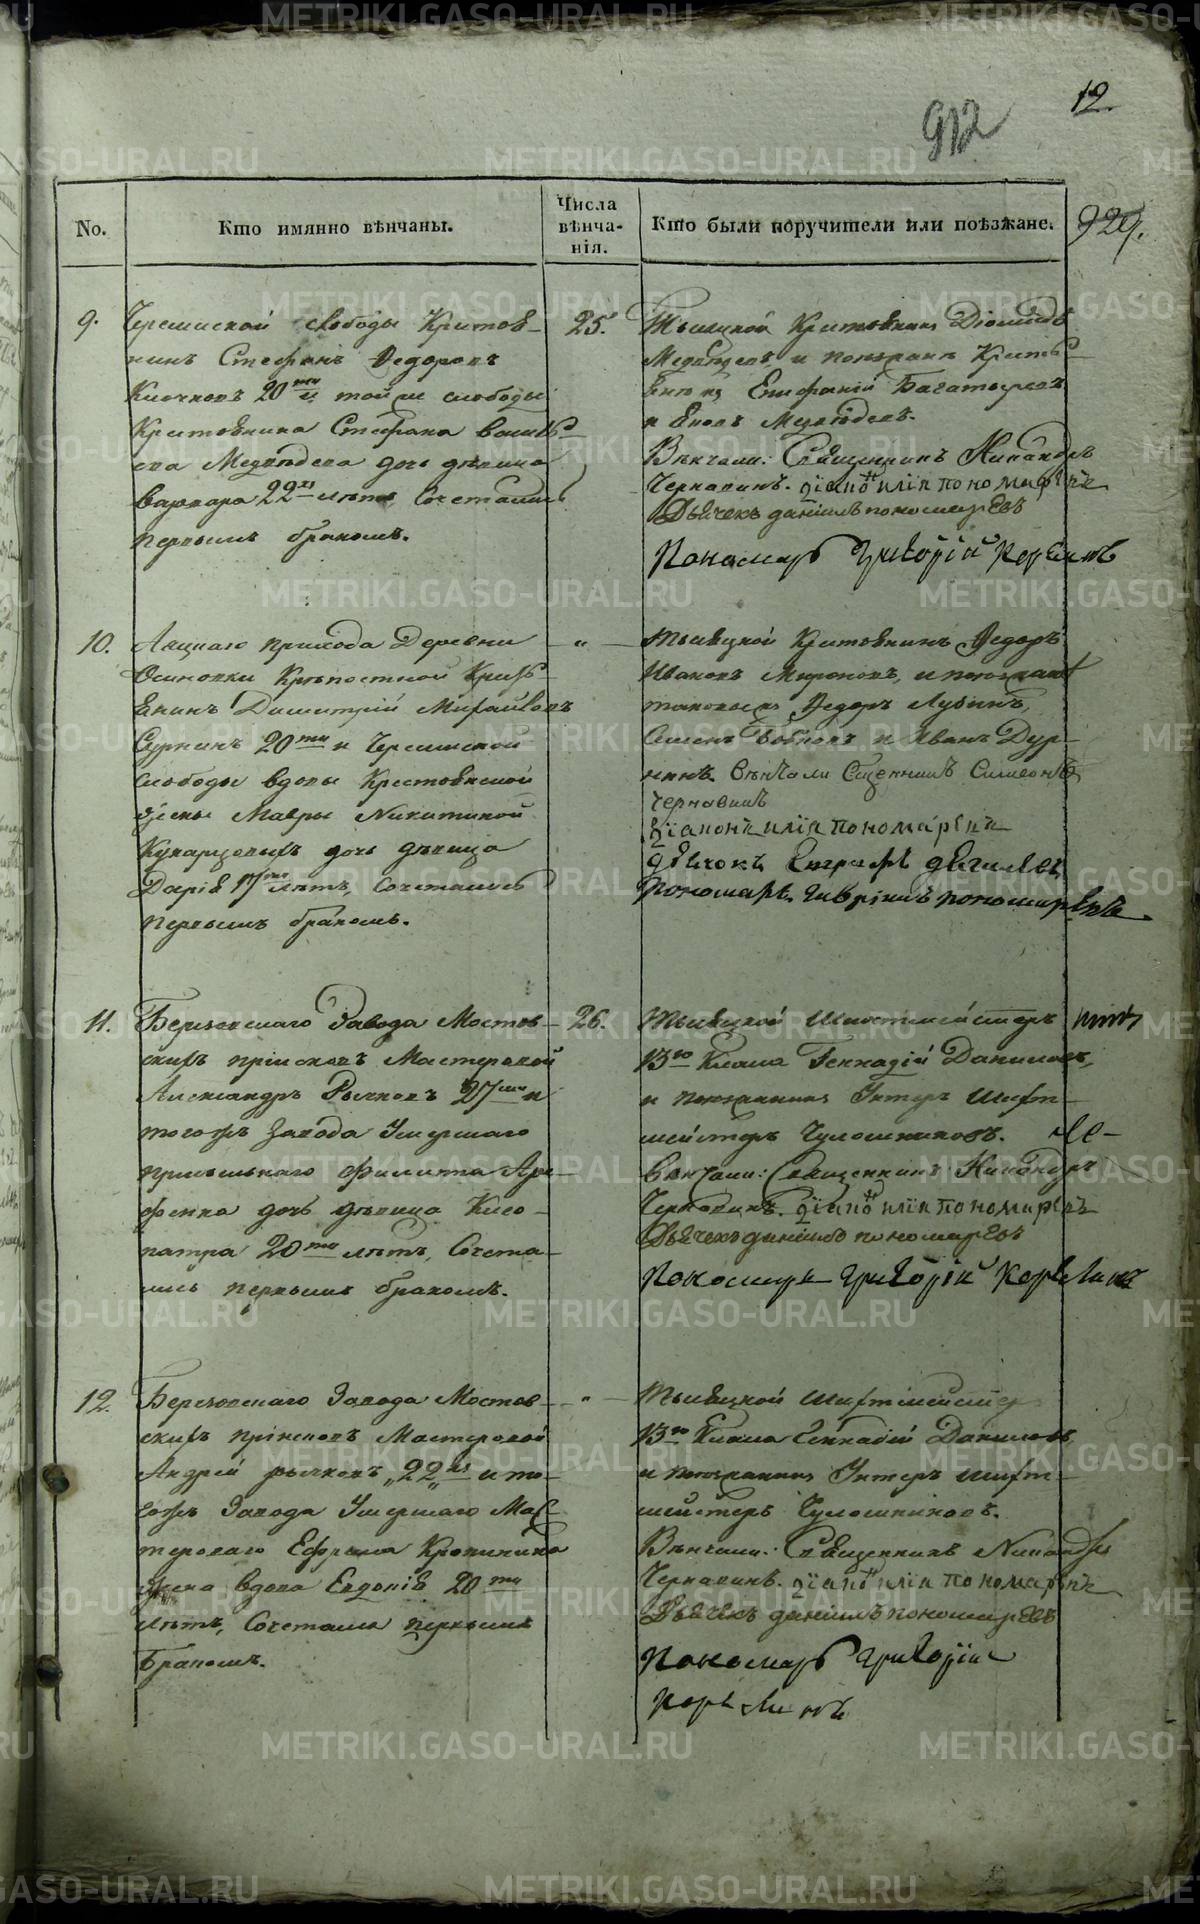 12.
912
929.
No.
Кто имянно вѣнчаны.
Числа
вѣнча-
нія.
Кто были поручители или поѣзжане.
9.
Черемиской слободы Кристов-
нинъ Стефанъ Ѳедоровъ
Клочковъ 20ти и той же слободы
Крестьянина Стефана Василь-
ева Медведева дочь дѣвица
Варвара 22хъ лѣтъ, Сочетались
первымъ бракомъ.
25.
Тысяцкой Крестьянинъ Діомидъ
Медведевъ, и поезжанъ Кресть-
янинъ Епифаній Багатыревъ
и Медведевъ.
Вѣнчали: Священникъ Никандръ
Чернавинъ. діаконъ илія пономаревъ
Дьячекъ даніилъ пономаревъ
Пономарь Григорій
10.
прихода Деревни
Осиновки Крѣпостной Кресть-
янинъ Димитрій Михайловъ
20ти и Черемиской
слободы вдовы Крестьянской
жены Мавры Никитиной
дочь дѣвица
Дарія лѣтъ, Сочетались
первымъ бракомъ.
"
Тысяцкой Крестьянинъ Ѳедоръ
Ивановъ Мироновъ, и поезжане
таковые Ѳедоръ
Семенъ Бобновъ и Иванъ Дур-
нинъ. Вѣнчали Сщенникъ Симеонъ
Чернавинъ
діаконъ илія пономаревъ
дьячокъ Евграфъ
пономарь гавріилъ пономаревъ
11.
Березовскаго Завода Мостов-
скихъ пріисковъ Мастеровой
Александръ Рычковъ 27ми и
тогожъ Завода Умершаго
Филипа Аре-
фьева дочь дѣвица Клео-
патра 20ти лѣтъ, Сочета-
лись первымъ бракомъ.
26.
Тысяцкой Шихтмейстеръ
13го Класа Геннадій Даниловъ,
и поезжанинъ Унтеръ Шихт-
мейстеръ Чулошниковъ.
Вѣнчали: Священникъ Никандръ
Чернавинъ. діаконъ илія пономаревъ
Дьячекъ даніилъ пономаревъ
Пономарь Григорій
12.
Березовскаго Завода Мостов-
скихъ пріисковъ Мастеровой
Андрей Рычковъ „22хъ и то-
гожъ Завода Умершаго Мас-
тероваго Ефрема Кропинина
жена вдова Евдокія 20ти
лѣтъ, Сочетались первымъ
бракомъ.
"
Тысяцкой Шихтмейстеръ
13го Класа Геннадій Даниловъ,
и поезжанинъ Унтеръ Шихт-
мейстеръ Чулошниковъ.
Вѣнчали: Священникъ Никандръ
Чернавинъ. діаконъ илія пономаревъ
Дьячекъ даніилъ пономаревъ
Пономарь Григорій
METRIKI.GASO-URAL.RU